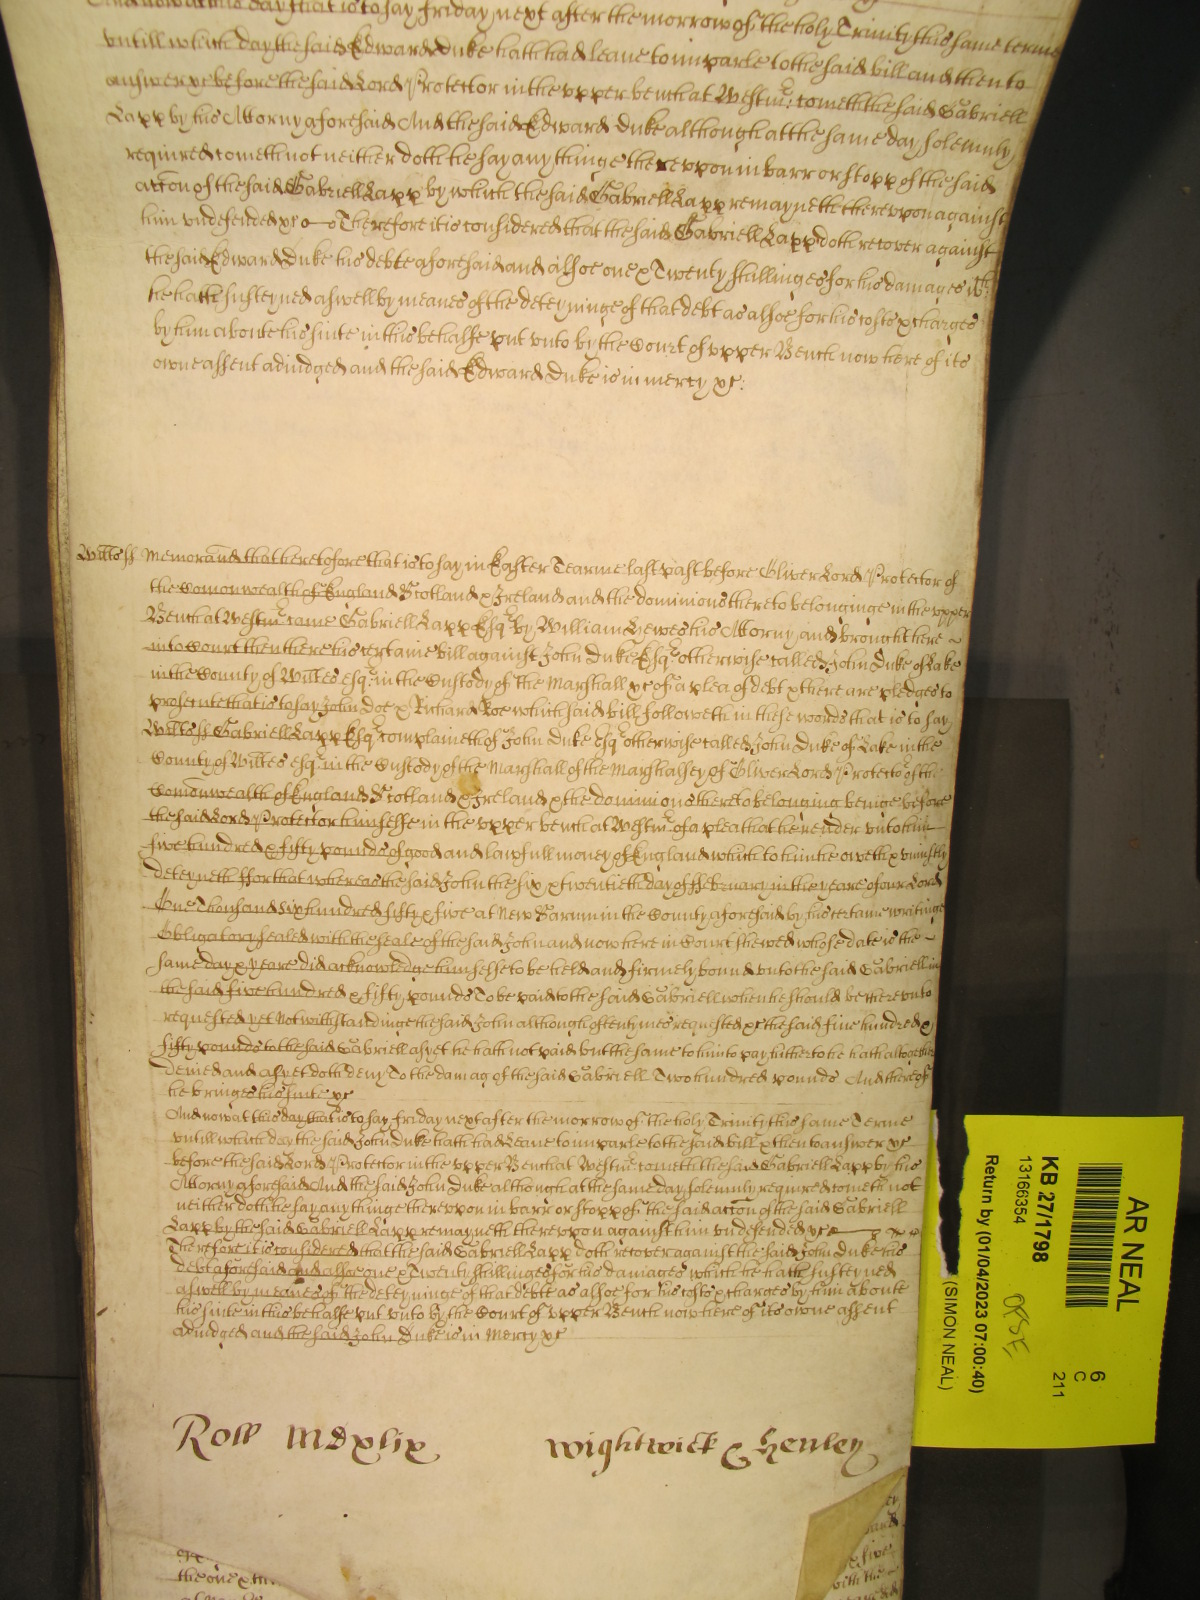 And now at this day that is to say Friday next after the morrow of the holy Trinity this same terme
untill which day the said Edward Duke hath had leave to imparle to the said bill and then to
answer &c before the said Lord Protector in the upper bench at Westmr: cometh the said Gabriell
Lapp by his Attorny aforesaid And the said Edward Duke although at the same day solemnly
required cometh not neither doth he say any thinge thereuppon in barr or stopp of the said
accon of the said Gabriell Lapp by which the said Gabriell Lapp remayneth thereuppon against
him undefended &c Therefore it is considered that the said Gabriell Lapp doth recover against
the said Edward Duke his debte aforesaid and alsoe one & Twenty shillinges for his damages wch
he hath susteyned aswell by meanes of the deteyninge of that debt as alsoe for his costs & charges
by him aboute his suite in this behalfe put unto by the Court of upper Bench now here of its
owne assent adiudged and the said Edward Duke is in mercy &c:
Wiltes ss Memorand that heretofore that is to say in Easter Tearme last past before Oliver Lord Protector of
the Comonwealth of England Scotland & Ireland and the dominions thereto belonginge in the upper
Bench at Westmr came Gabriell Lapp Esqr by William Hewes his Attorny and brought here
into Court then there his certaine bill against John Duke Esqr otherwise called John Duke of Lake
in the County of Wiltes esqr: in the Custody of the Marshall &c of a plea of debt & there are pledges to
prosecute that is to say John Doe & Richard Roe which said bill followeth in these words that is to say
Wiltes ss Gabriell Lapp Esqr complaineth of John Duke esqr otherwise called John Duke of Lake in the
County of Wiltes esqr in the Custody of the Marshall of the Marshalsey of Oliver Lord Protector of the
Comonwealth of England Scotland & Ireland & the dominions thereto belonging beinge before
the said Lord Protector himselfe in the upper bench at Westmr of a plea that he render unto him
five hundred & fifty pounds of good and lawfull money of England which to him he oweth & uniustly
deteyneth ffor that whereas the said John the six & twentieth day of ffebruary in the yeare of our Lord
One Thousand six hundred fifty & five at New Sarum in the County aforesaid by his certaine writinge
Obligatory sealed with the seale of the said John and now here in Court shewed whose date is the
same day & yeare did acknowledge himselfe to be held and firmely bound unto the said Gabriell in
the said five hundred & fifty pounds To be paid to the said Gabriell when he should be thereunto
requested yet Notwithstandinge the said John although oftentymes requested &c the said five hundred &
fifty pounds to the said Gabriell as yet he hath not paid but the same to him to pay hitherto he hath altogether
denied and as yet doth deny To the damag of the said Gabriell Two hundred pounds And thereof
he bringes his suite &c
And now at this day that is to say Friday next after the morrow of the holy Trinity this same Terme
untill which day the said John Duke hath had Leave to imparle to the said bill & then to answer &c
before the said Lord Protector in the upper Bench at Westmr cometh the said Gabriell Lapp by his
Attorny aforesaid And the said John Duke although at the same day solemnly required cometh not
neither doth he say any thinge thereuppon in barr or stopp of the said accon of the said Gabriell
Lapp by the said Gabriell Lapp remayneth thereuppon against him undefended &c
Therefore it is considered that the said Gabriell Lapp doth recover against the said John Duke his
debt aforesaid and alsoe one & Twenty shillinges for his damages which he hath susteyned
aswell by meanes of the deteyninge of that debte as alsoe for his costs & charges by him aboute
his suite in this behalfe put unto by the Court of upper Bench now here of its owne assent
adiudged and the said John Duke is in Mercy &c
Roll Mdxlix Wightwick & Henley
the one & tw
AR NEAL
6
C
211
KB 27/1798
13166354
Return by (01/04/2023 07:00:40)
(SIMON NEAL)